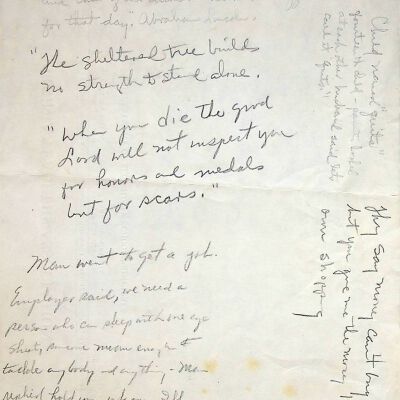 for that day." Abraham Lincoln.
"The sheltered tree builds
no strength to stand alone.
"When you die the good
Lord will not inspect you
for honors and medals
but for scars."
Man went to get a job.
Employer said, we need a
person who can sleep with one eye
shut, someone mean enough to
tackle anybody and anything. Man
Child named "quits"
at each other, husband said let's
call it quits."
They say money can't buy
but you give me the money
own shopping